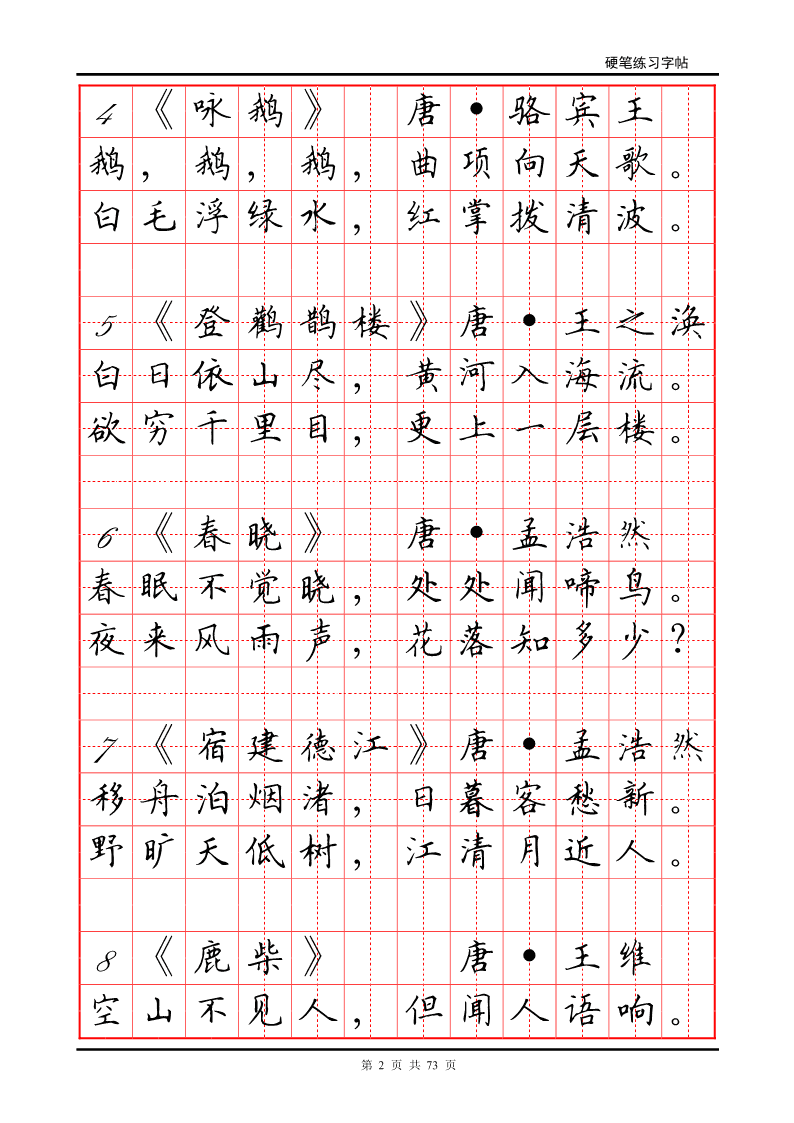 硬笔练习字帖
4《咏鹅》 唐•骆宾王
鹅，鹅，鹅，曲项向天歌。
白毛浮绿水，红掌拨清波。
5《登鹳鹊楼》唐•王之涣
白日依山尽，黄河入海流。
欲穷千里目，更上一层楼。
6《春晓》 唐•孟浩然
春眠不觉晓，处处闻啼鸟。
夜来风雨声，花落知多少？
7《宿建德江》唐•孟浩然
移舟泊烟渚，日暮客愁新。
野旷天低树，江清月近人。
8《鹿柴》 唐•王维
空山不见人，但闻人语响。
第 2 页 共 73 页